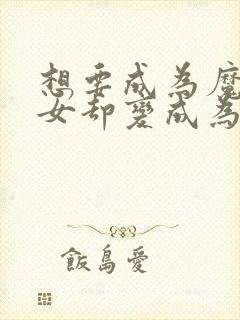 想要成為魔
女却變成為
飯島愛